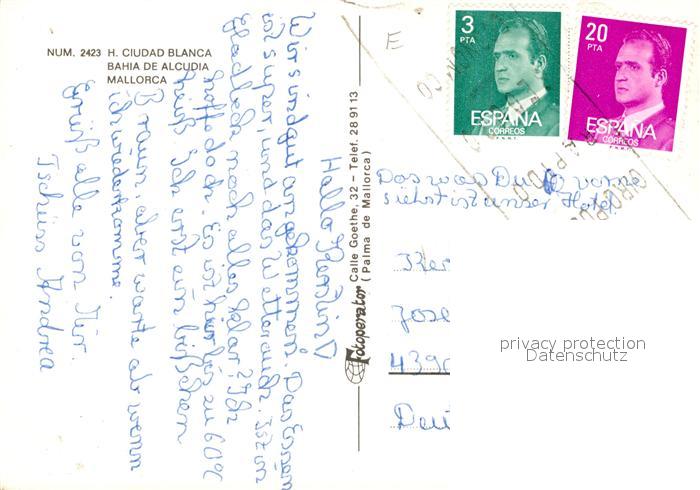 NUM. 2423 H. CIUDAD BLANCA
BAHIA DE ALCUDIA
MALLORCA
Hallo
Wir sind gut angekommen. Das Essen
ist super, und das Wetter auch. Ist im
noch alles klar? Ich
hoffe doch. Es ist hier bis zu 60°C
heiß. Ich erst ein bißchen
Braun, aber warte ab wenn
ich wiederkomme.
Grüß alle von mir.
Tschüss Andrea
Fotoperator
Calle Goethe, 32 - Telef. 28 91 13
(Palma de Mallorca)
E
3
PTA
ESPAÑA
CORREOS
20
PTA
ESPAÑA
CORREOS
Das was Du vorne
siehst ist unser Hotel
Ker
Jose
4390
Deu
privacy protection
Datenschutz